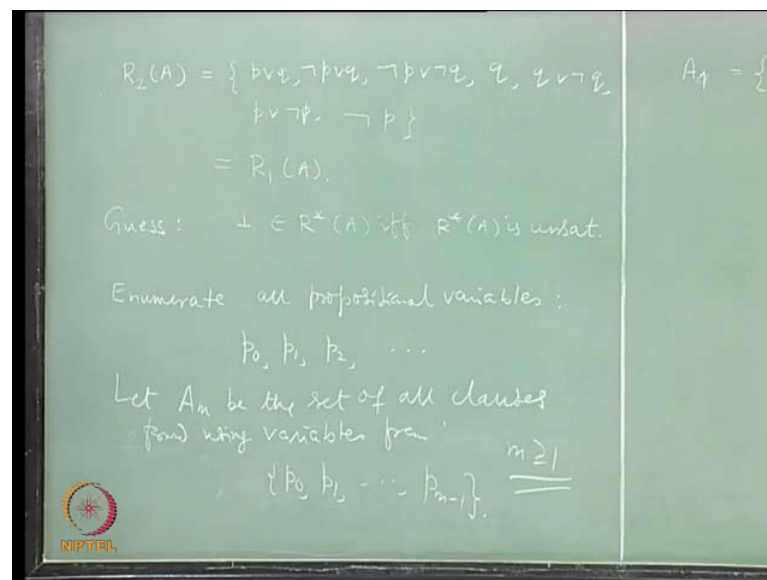 R₂(A) = { p∨q, ¬p∨q, ¬p∨¬q, q, q∨¬q,
p∨¬p, ¬p }
= R₁(A).
Guess: ⊥ ∈ R*(A) iff R*(A) is unsat.
Enumerate all propositional variables:
p₀, p₁, p₂, ...
Let Aₘ be the set of all clauses
using variables from
{p₀, p₁, ..., pₘ₋₁}. m≥1
A₁ = {
NPTEL